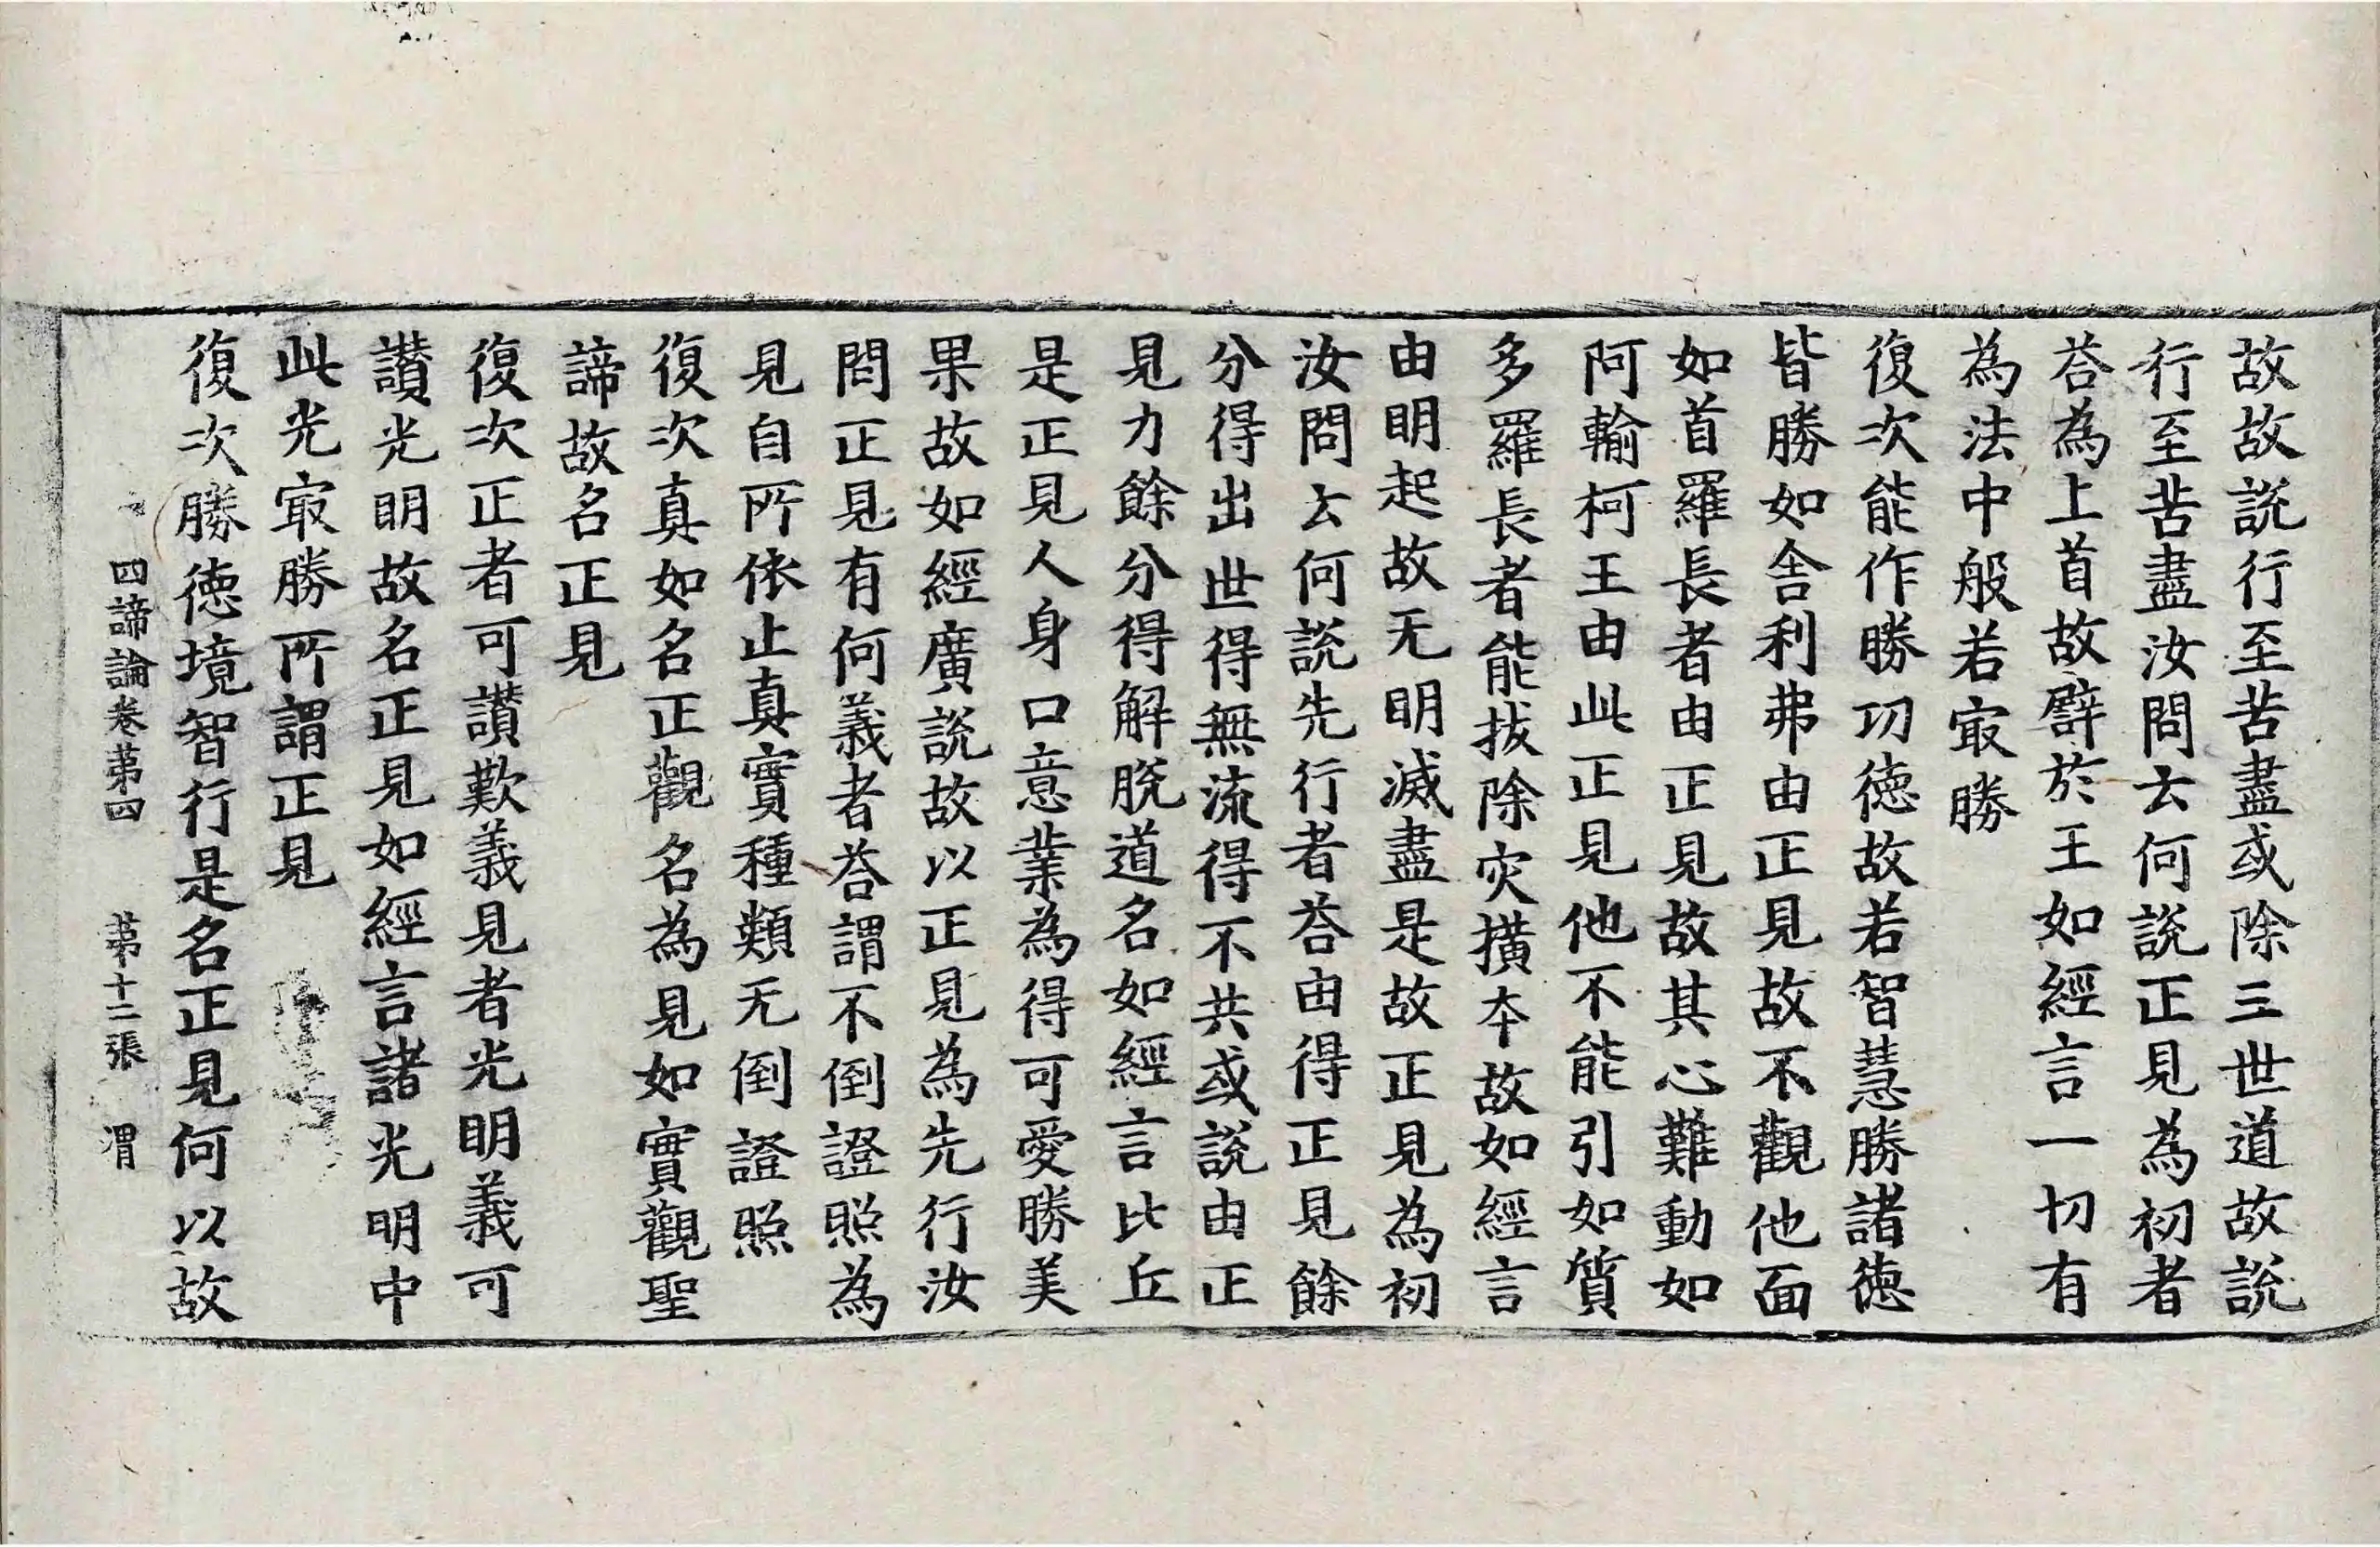 故故説行至苦盡或除三世道故説
行至苦盡汝問云何説正見為初者
荅為上首故譬於王如經言一切有
為法中般若㝡勝
復次能作勝㓛徳故若智慧勝諸徳
皆勝如舎利弗由正見故不觀他面
如首羅長者由正見故其心難動如
阿輸柯王由此正見他不能引如質
多羅長者能拔除灾撗夲故如經言
由明起故无明滅盡是故正見為初
汝問云何説先行者荅由得正見餘
分得出世得無流得不共或説由正
見力餘分得解脱道名如經言比丘
是正見人身口意業為得可愛勝美
果故如經廣説故以正見為先行汝
問正見有何義者荅謂不倒證照為
見自所依止真實種類无倒證照
復次真如名正觀名為見如實觀聖
諦故名正見
復次正者可讃歎義見者光明義可
讃光明故名正見如經言諸光明中
此光㝡勝所謂正見
復次勝徳境智行是名正見何以故
四諦論卷苐四 苐十二張 渭